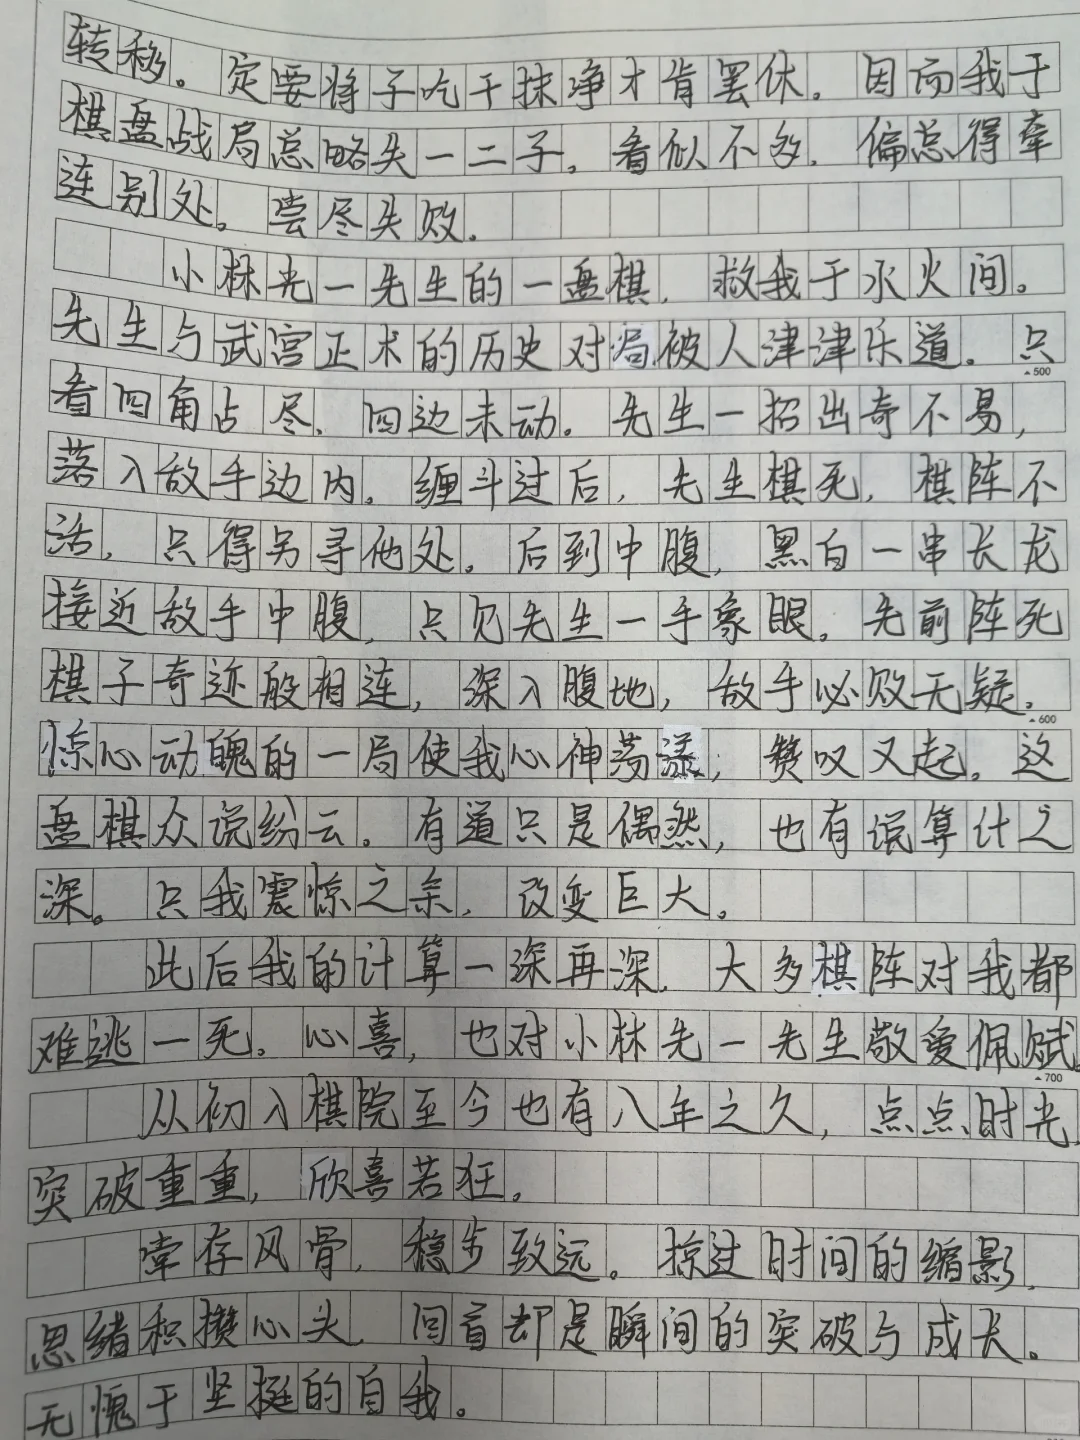 转移。定要将子吃干抹净才肯罢休。因而我于
棋盘战局总略失一二子。看似不多，偏总得牵
连别处。尝尽失败。
小林光一先生的一盘棋，救我于水火间。
先生与武宫正术的历史对局被人津津乐道。只
500
看四角占尽，四边未动。先生一招出奇不易，
落入敌手边内。缠斗过后，先生棋死，棋阵不
活，只得另寻他处。后到中腹，黑白一串长龙
接近敌手中腹，只见先生一手象眼。先前阵死
棋子奇迹般相连，深入腹地，敌手必败无疑。
600
惊心动魄的一局使我心神荡漾，赞叹又起。这
盘棋众说纷云。有道只是偶然，也有说算计之
深。只我震惊之余，改变巨大。
此后我的计算一深再深，大多棋阵对我都
难逃一死。心喜，也对小林先一先生敬爱佩赋。
700
从初入棋院至今也有八年之久，点点时光，
突破重重，欣喜若狂。
常存风骨，稳步致远。掠过时间的缩影，
思绪积攒心头，回首却是瞬间的突破与成长。
无愧于坚挺的自我。